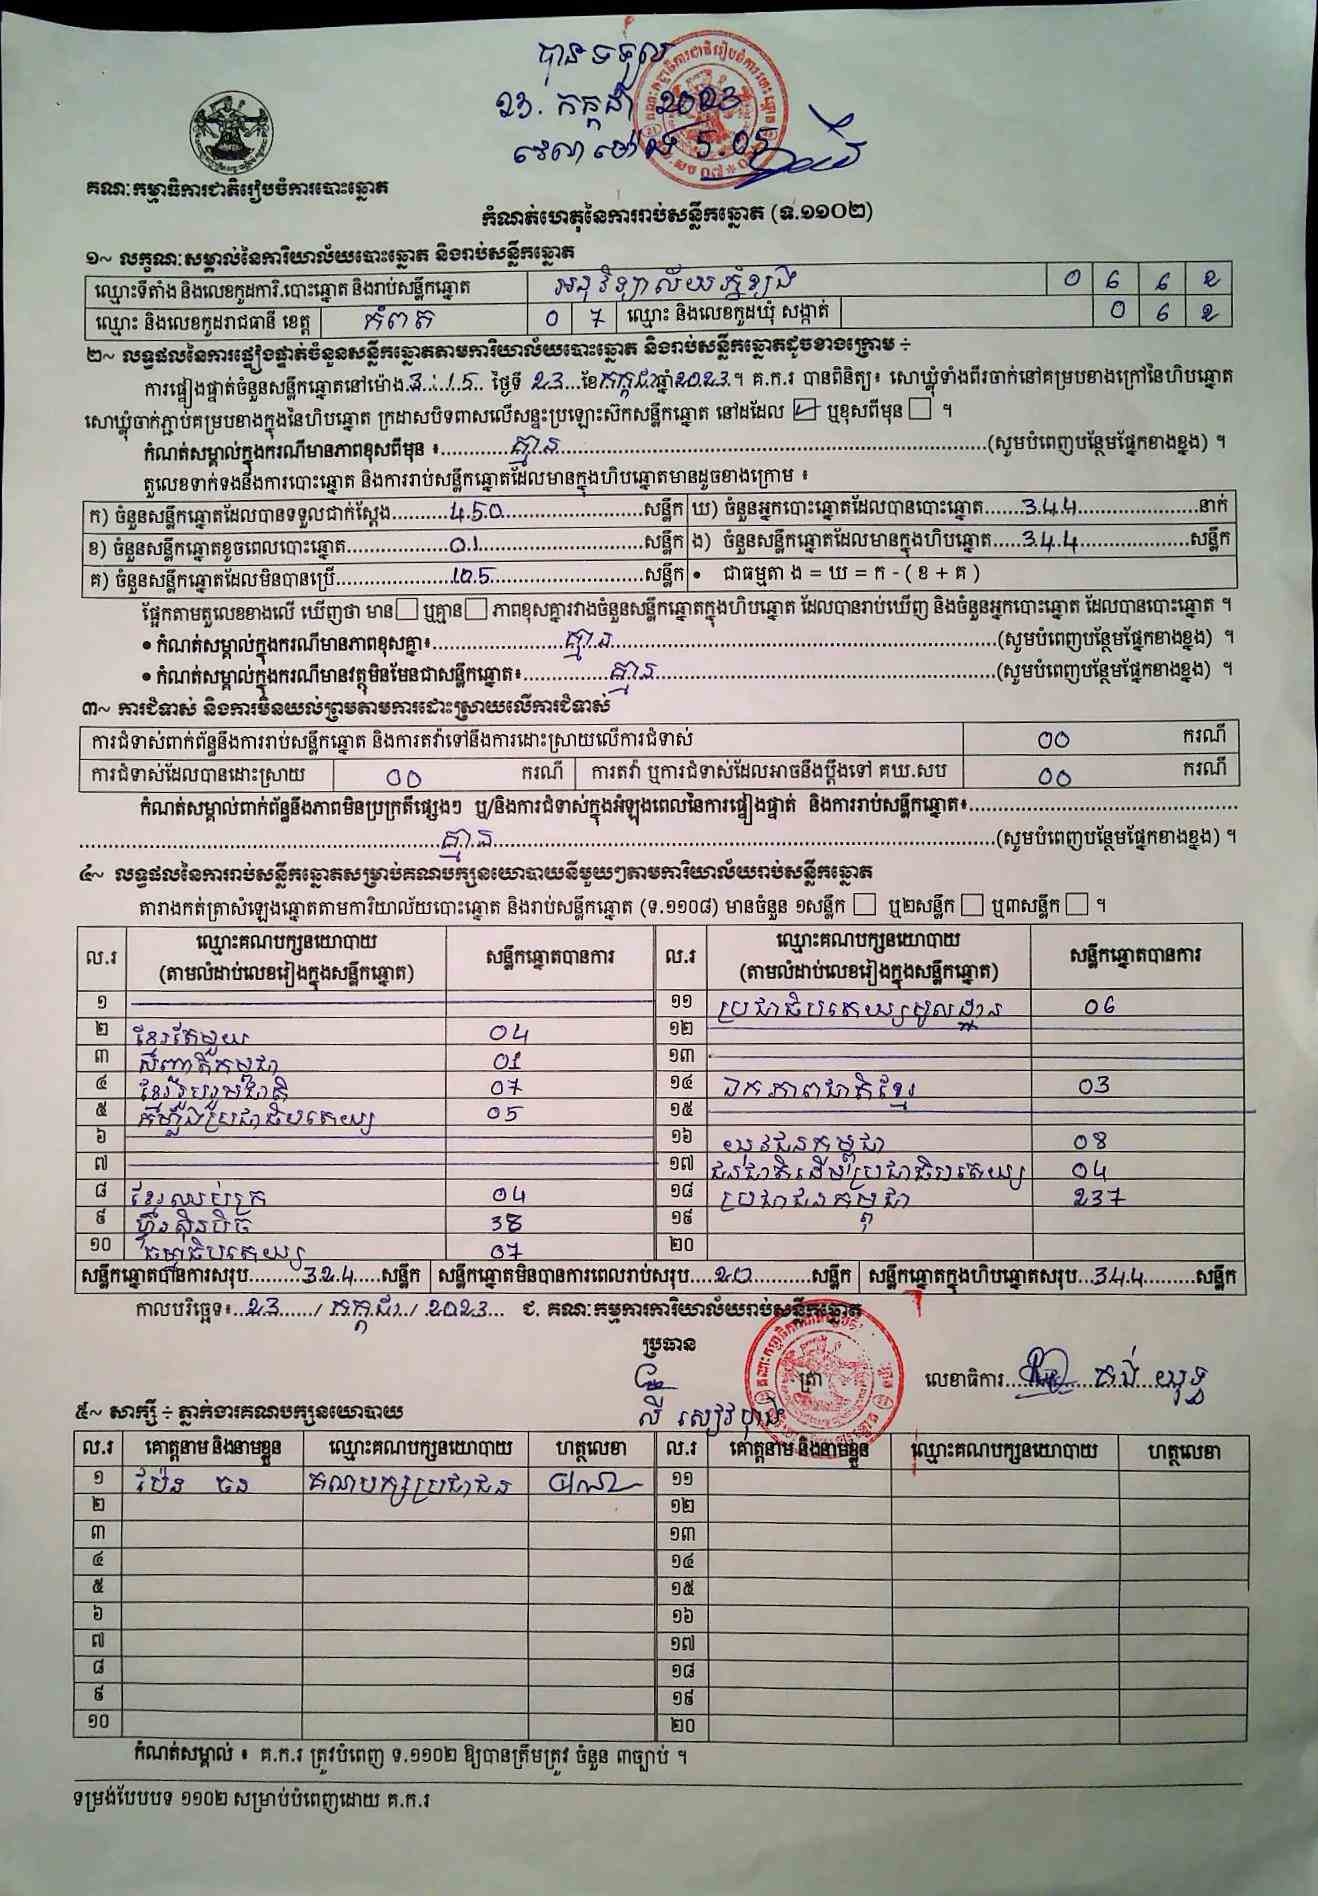 បានទទួល
23. កក្កដា 2023
វេលាម៉ោង 5.05
គណៈកម្មាធិការជាតិរៀបចំការបោះឆ្នោត
កំណត់ហេតុនៃការរាប់សន្លឹកឆ្នោត (ទ.១១០២)
១~ លក្ខណៈសម្គាល់នៃការិយាល័យបោះឆ្នោត និងរាប់សន្លឹកឆ្នោត
ឈ្មោះទីតាំង និងលេខកូដការិ.បោះឆ្នោត និងរាប់សន្លឹកឆ្នោត អនុវិទ្យាល័យ 0 6 6 2
ឈ្មោះ និងលេខកូដរាជធានី ខេត្ត កំពត 0 7 ឈ្មោះ និងលេខកូដឃុំ សង្កាត់ 0 6 2
២~ លទ្ធផលនៃការផ្ទៀងផ្ទាត់ចំនួនសន្លឹកឆ្នោតតាមការិយាល័យបោះឆ្នោត និងរាប់សន្លឹកឆ្នោតដូចខាងក្រោម ÷
ការផ្ទៀងផ្ទាត់ចំនួនសន្លឹកឆ្នោតនៅម៉ោង.3:.15.. ថ្ងៃទី 23...ខែកក្កដាឆ្នាំ2023.។ គ.ក.រ បានពិនិត្យ៖ សោឃ្លុំទាំងពីរចាក់នៅគម្របខាងក្រៅនៃហិបឆ្នោត
សោឃ្លុំចាក់ភ្ជាប់គម្របខាងក្នុងនៃហិបឆ្នោត ក្រដាសបិទពាសលើសន្ទះប្រឡោះស៊កសន្លឹកឆ្នោត នៅដដែល ☑ ឬខុសពីមុន ☐ ។
កំណត់សម្គាល់ក្នុងករណីមានភាពខុសពីមុន ៖............គ្មាន............(សូមបំពេញបន្ថែមផ្នែកខាងខ្នង) ។
តួលេខទាក់ទងនឹងការបោះឆ្នោត និងការរាប់សន្លឹកឆ្នោតដែលមានក្នុងហិបឆ្នោតមានដូចខាងក្រោម ៖
ក) ចំនួនសន្លឹកឆ្នោតដែលបានទទួលជាក់ស្តែង..........450..........សន្លឹក ឃ) ចំនួនអ្នកបោះឆ្នោតដែលបានបោះឆ្នោត.......344..........នាក់
ខ) ចំនួនសន្លឹកឆ្នោតខូចពេលបោះឆ្នោត..........01..........សន្លឹក ង) ចំនួនសន្លឹកឆ្នោតដែលមានក្នុងហិបឆ្នោត.....344..........សន្លឹក
គ) ចំនួនសន្លឹកឆ្នោតដែលមិនបានប្រើ..........105..........សន្លឹក • ជាធម្មតា ង = ឃ = ក - ( ខ + គ )
ផ្អែកតាមតួលេខខាងលើ ឃើញថា មាន☐ ឬគ្មាន☐ ភាពខុសគ្នារវាងចំនួនសន្លឹកឆ្នោតក្នុងហិបឆ្នោត ដែលបានរាប់ឃើញ និងចំនួនអ្នកបោះឆ្នោត ដែលបានបោះឆ្នោត ។
• កំណត់សម្គាល់ក្នុងករណីមានភាពខុសគ្នា៖..........គ្មាន..........(សូមបំពេញបន្ថែមផ្នែកខាងខ្នង) ។
• កំណត់សម្គាល់ក្នុងករណីមានវត្ថុមិនមែនជាសន្លឹកឆ្នោត៖..........គ្មាន..........(សូមបំពេញបន្ថែមផ្នែកខាងខ្នង) ។
៣~ ការជំទាស់ និងការមិនយល់ព្រមតាមការដោះស្រាយលើការជំទាស់
ការជំទាស់ពាក់ព័ន្ធនឹងការរាប់សន្លឹកឆ្នោត និងការតវ៉ាទៅនឹងការដោះស្រាយលើការជំទាស់ 00 ករណី
ការជំទាស់ដែលបានដោះស្រាយ 00 ករណី ការតវ៉ា ឬការជំទាស់ដែលអាចនឹងប្តឹងទៅ គឃ.សប 00 ករណី
កំណត់សម្គាល់ពាក់ព័ន្ធនឹងភាពមិនប្រក្រតីផ្សេងៗ ឬ/និងការជំទាស់ក្នុងអំឡុងពេលនៃការផ្ទៀងផ្ទាត់ និងការរាប់សន្លឹកឆ្នោត៖..........
..........គ្មាន..........(សូមបំពេញបន្ថែមផ្នែកខាងខ្នង) ។
៤~ លទ្ធផលនៃការរាប់សន្លឹកឆ្នោតសម្រាប់គណបក្សនយោបាយនីមួយៗតាមការិយាល័យរាប់សន្លឹកឆ្នោត
តារាងកត់ត្រាសំឡេងឆ្នោតតាមការិយាល័យបោះឆ្នោត និងរាប់សន្លឹកឆ្នោត (ទ.១១០៨) មានចំនួន ១សន្លឹក ☐ ឬ២សន្លឹក ☐ ឬ៣សន្លឹក ☐ ។
ល.រ ឈ្មោះគណបក្សនយោបាយ (តាមលំដាប់លេខរៀងក្នុងសន្លឹកឆ្នោត) សន្លឹកឆ្នោតបានការ ល.រ ឈ្មោះគណបក្សនយោបាយ (តាមលំដាប់លេខរៀងក្នុងសន្លឹកឆ្នោត) សន្លឹកឆ្នោតបានការ
១ ១១ ប្រជាធិបតេយ្យមូលដ្ឋាន 06
២ ខ្មែរតែមួយ 04 ១២
៣ សញ្ជាតិកម្ពុជា 01 ១៣
៤ ខ្មែររួបរួមជាតិ 07 ១៤ ឯកភាពជាតិខ្មែរ 03
៥ កម្លាំងប្រជាធិបតេយ្យ 05 ១៥
៦ ១៦ យុវជនកម្ពុជា 08
៧ ១៧ ជនជាតិដើមប្រជាធិបតេយ្យ 04
៨ ខ្មែរឈប់ក្រ 04 ១៨ ប្រជាជនកម្ពុជា 237
៩ ហ្វ៊ុនស៊ិនប៉ិច 38 ១៩
១០ ធម្មាធិបតេយ្យ 07 ២០
សន្លឹកឆ្នោតបានការសរុប..........324.....សន្លឹក សន្លឹកឆ្នោតមិនបានការពេលរាប់សរុប....20..........សន្លឹក សន្លឹកឆ្នោតក្នុងហិបឆ្នោតសរុប...344.........សន្លឹក
កាលបរិច្ឆេទ៖...23....../ កក្កដា / 2023... ជ. គណៈកម្មការការិយាល័យរាប់សន្លឹកឆ្នោត
ប្រធាន
ត្រា
លេខាធិការ
លី សៀវហុង
៥~ សាក្សី ÷ ភ្នាក់ងារគណបក្សនយោបាយ
ល.រ គោត្តនាម និងនាមខ្លួន ឈ្មោះគណបក្សនយោបាយ ហត្ថលេខា ល.រ គោត្តនាម និងនាមខ្លួន ឈ្មោះគណបក្សនយោបាយ ហត្ថលេខា
១ ប៉ែន ចន គណបក្សប្រជាជន ១១
២ ១២
៣ ១៣
៤ ១៤
៥ ១៥
៦ ១៦
៧ ១៧
៨ ១៨
៩ ១៩
១០ ២០
កំណត់សម្គាល់ ៖ គ.ក.រ ត្រូវបំពេញ ទ.១១០២ ឱ្យបានត្រឹមត្រូវ ចំនួន ៣ច្បាប់ ។
ទម្រង់បែបបទ ១១០២ សម្រាប់បំពេញដោយ គ.ក.រ